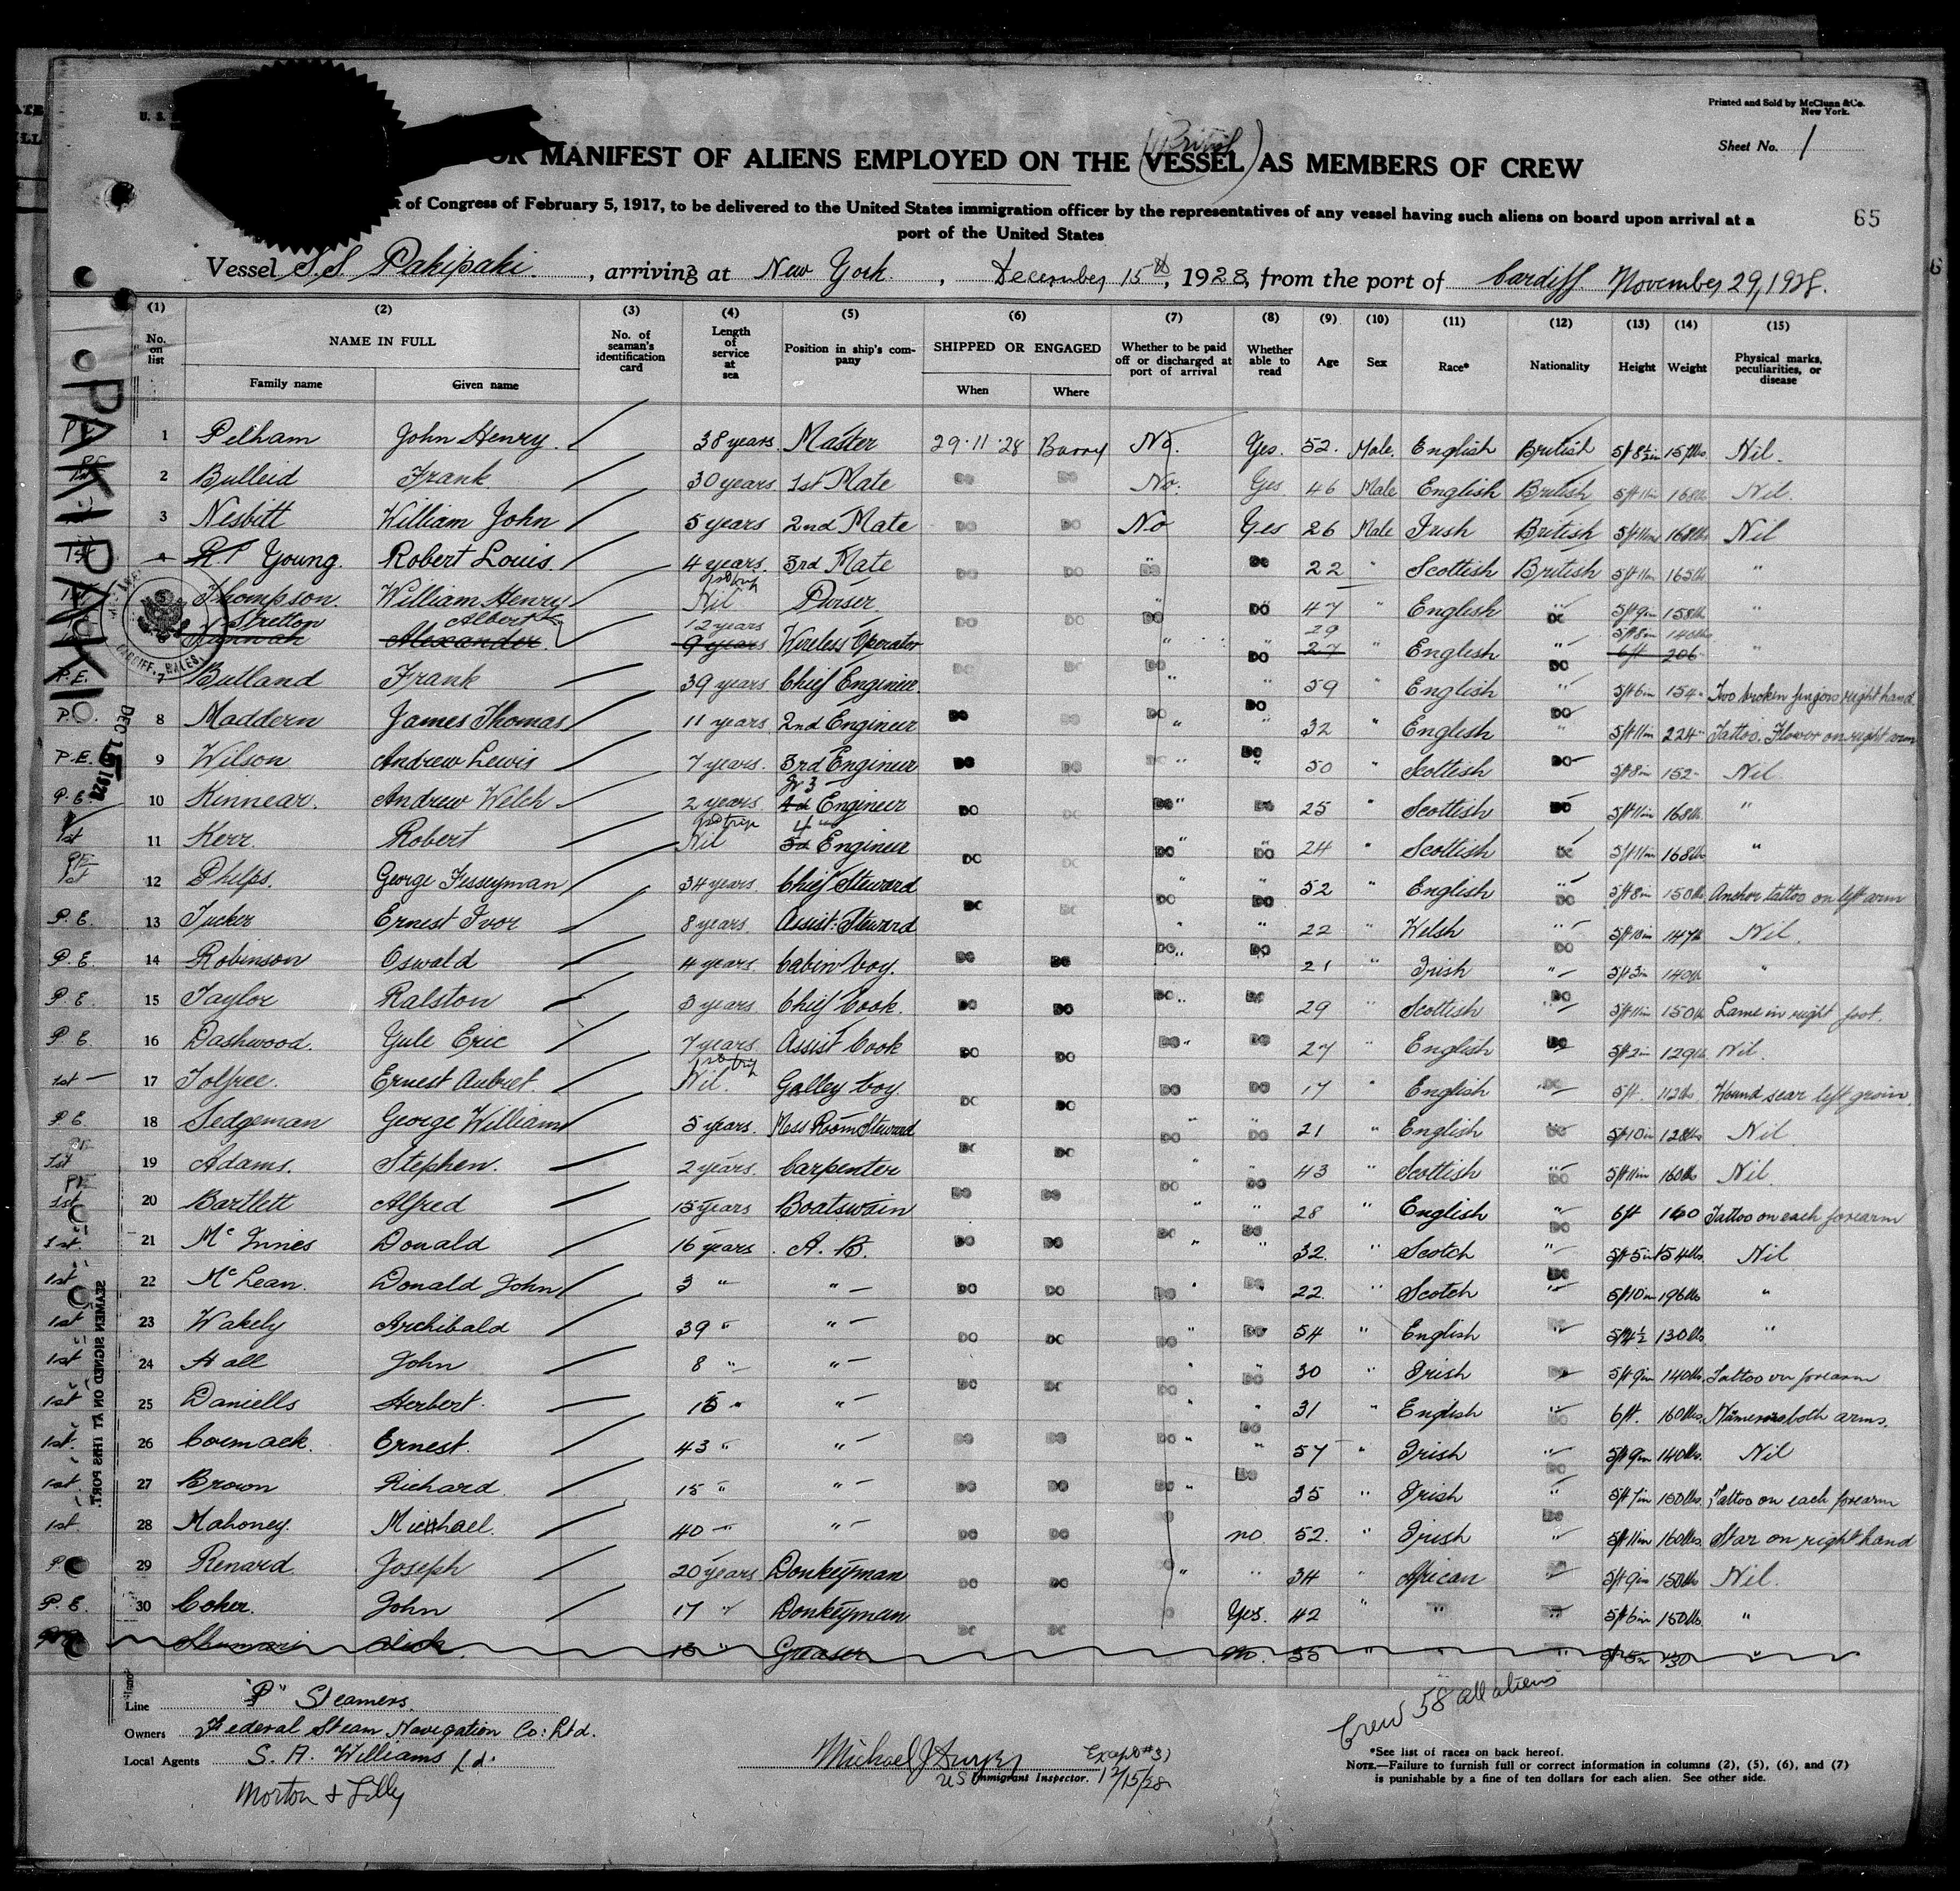 U. S.
Printed and Sold by McClunn & Co.
New York.
Sheet No. 1
(British)
OR MANIFEST OF ALIENS EMPLOYED ON THE VESSEL AS MEMBERS OF CREW
t of Congress of February 5, 1917, to be delivered to the United States immigration officer by the representatives of any vessel having such aliens on board upon arrival at a
port of the United States
65
Vessel S.S. Pakipaki., arriving at New York., December 15th, 1928, from the port of Cardiff November 29, 1928.
(1) (2) (3) (4) (5) (6) (7) (8) (9) (10) (11) (12) (13) (14) (15)
No. on list NAME IN FULL No. of seaman's identification card Length of service at sea Position in ship's company SHIPPED OR ENGAGED Whether to be paid off or discharged at port of arrival Whether able to read Age Sex Race* Nationality Height Weight Physical marks, peculiarities, or disease
Family name Given name When Where
PAKIPAKI
DEC 15 1928
SEAMEN SIGNED ON AT THIS PORT.
1 Pelham John Henry. 38 years. Master 29.11.28 Barry No. Yes. 52. Male. English British 5ft 8½in 157lbs Nil.
2 Bulleid Frank. 30 years 1st Mate DO DO No. Yes 46 Male English British 5ft 11in 168lb Nil.
3 Nesbitt William John 5 years 2nd Mate DO DO No Yes 26 Male Irish British 5ft 11in 168lb Nil
1st 4 Young. Robert Louis. 4 years. 3rd Mate DO DO " DO DO 22 " Scottish British 5ft 11in 165lb "
1st Thompson. William Henry 1st trip Nil Purser DO DO " DO " DO 47 " English " DO 5ft 9in 158lb "
Stretton Albert 12 years 29 5ft 8in 140lbs
Hannah Alexander 9 years Wireless Operator DO DO " DO " DO 27 " English " DO 6ft 206 "
P.E. 7 Bulland Frank 39 years Chief Engineer. " " 59 " English " 5ft 6in 154 " Two broken fingers right hand
8 Maddern James Thomas 11 years 2nd Engineer DO DO DO " DO " 32 " English DO " 5ft 11in 224 " Tattoo. Flower on right arm
P.E. 9 Wilson Andrew Lewis 7 years. 3rd Engineer DO DO DO " DO " 50 " Scottish DO 5ft 8in 152 Nil.
P.E. 10 Kinnear. Andrew Welch 2 years Jr 3 4th Engineer DO DO DO " DO 25 " Scottish DO 5ft 11in 168lb "
1st 11 Kerr. Robert 1st trip Nil 4 " Engineer DO DO DO " DO " 24 " Scottish DO 5ft 11in 168lb "
PE 1st 12 Phelps. George Fesseyman 34 years. Chief Steward DO DO " DO " DO 52 " English " DO 5ft 8in 150lb Anchor tattoo on left arm
P.E. 13 Tucker Ernest Ivor 8 years Assist: Steward " " 22 " Welsh " 5ft 10in 147lb Nil.
P.E. 14 Robinson Oswald 4 years. Cabin boy. DO DO DO " DO 21 " Irish DO " 5ft 3in 140lb "
P.E. 15 Taylor Ralston 3 years Chief Cook. DO DO DO " DO 29 " Scottish DO " 5ft 11in 150lb Lame in right foot.
P.E. 16 Dashwood. Yule Eric 7 years Assist Cook DO DO DO " DO 27 " English DO 5ft 2in 129lb Nil.
1st 17 Tolfree. Ernest Aubret. 1st trip Nil. Galley boy. DO DO DO DO 17 " English DO " 5ft. 112lbs Wound scar left groin.
P.E. 18 Sedgeman George William 5 years. Mess Room Steward DO DO " DO DO 21 " English DO 5ft 10in 128lbs Nil.
PE 1st 19 Adams. Stephen. 2 years. Carpenter " DO " DO 43 " Scottish " DO 5ft 11in 160lbs Nil.
PE 1st 20 Bartlett Alfred 15 years Boatswain DO DO " " 28 " English " DO 6ft 160 Tattoo on each forearm
1st. 21 McInnes Donald 16 years. A. B. DO DO DO " DO " 32. " Scotch " 5ft 5in 154lbs. Nil
1st 22 McLean. Donald John 3 " " DO DO DO " DO 22. " Scotch DO " 5ft 10in 196lbs "
1st 23 Wakely Archibald 39 " " DO DO DO " DO 54 " English DO 5ft 4½ 130lbs. "
1st 24 Hall John 8 " " DO DO " " 30 " Irish DO 5ft 9in 140lbs. Tattoo on forearm
1st 25 Daniells Herbert. 15 " " DO " " 31 " English " DO 6ft. 160lbs. both arms.
1st. 26 Cormack. Ernest. 43 " " DO DO DO " DO " 57 " Irish " DO 5ft 9in 140lbs. Nil
1st. 27 Brown Richard 15 " " DO DO DO " DO 35 " Irish " 5ft 7in 150lbs. Tattoo on each forearm
1st. 28 Mahoney. Michael. 40 " " DO DO no. 52. " Irish DO " 5ft 11in 160lbs. Star on right hand
29 Renard Joseph 20 years Donkeyman DO DO " " 34 " African DO 5ft 9in 150lbs Nil.
P.E. 30 Coker. John 17 " Donkeyman DO DO Yes. 42 " " " 5ft 6in 150lbs. "
Greaser no. 35 " " " 5ft 5in 130 "
Crew 58 all aliens
Line "P" Steamers.
Owners Federal Steam Navigation Co: Ltd.
Local Agents S. A. Williams Ld.
Morton & Lilly
Michael J
US Immigrant Inspector. 12/15/28
*See list of races on back hereof.
NOTE.—Failure to furnish full or correct information in columns (2), (5), (6), and (7)
is punishable by a fine of ten dollars for each alien. See other side.